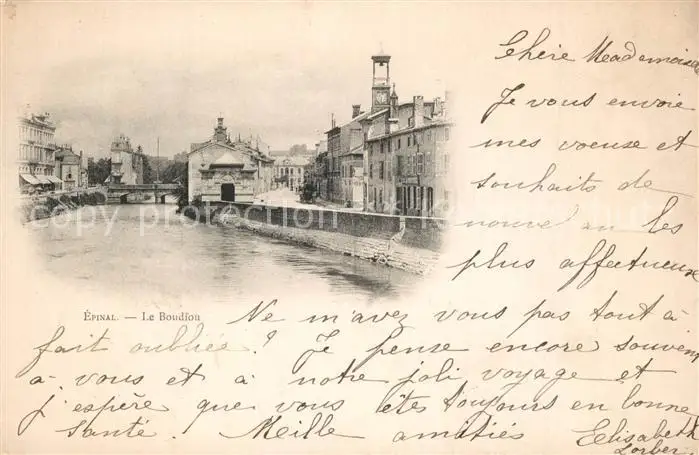 Chère Mademoise
Je vous envoie
mes voeuse et
souhaits de
nouvel an les
plus affectueuse
ÉPINAL. — Le Boudiou
Ne m'avez vous pas tout à
fait oubliée? Je pense encore souvent
à vous et à notre joli voyage et
j'espère que vous êtes toujours en bonne
santé. Meille amitiés Elisabeth
Lorber
copyright